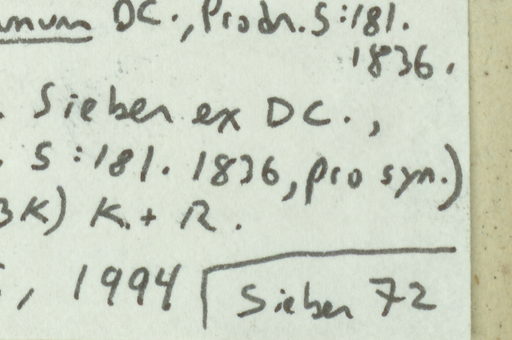 DC., Prodr. 5:181.
1836.
. Sieber ex DC.,
. 5:181. 1836, pro syn.)
BK) K. + R.
, 1994 Sieber 72